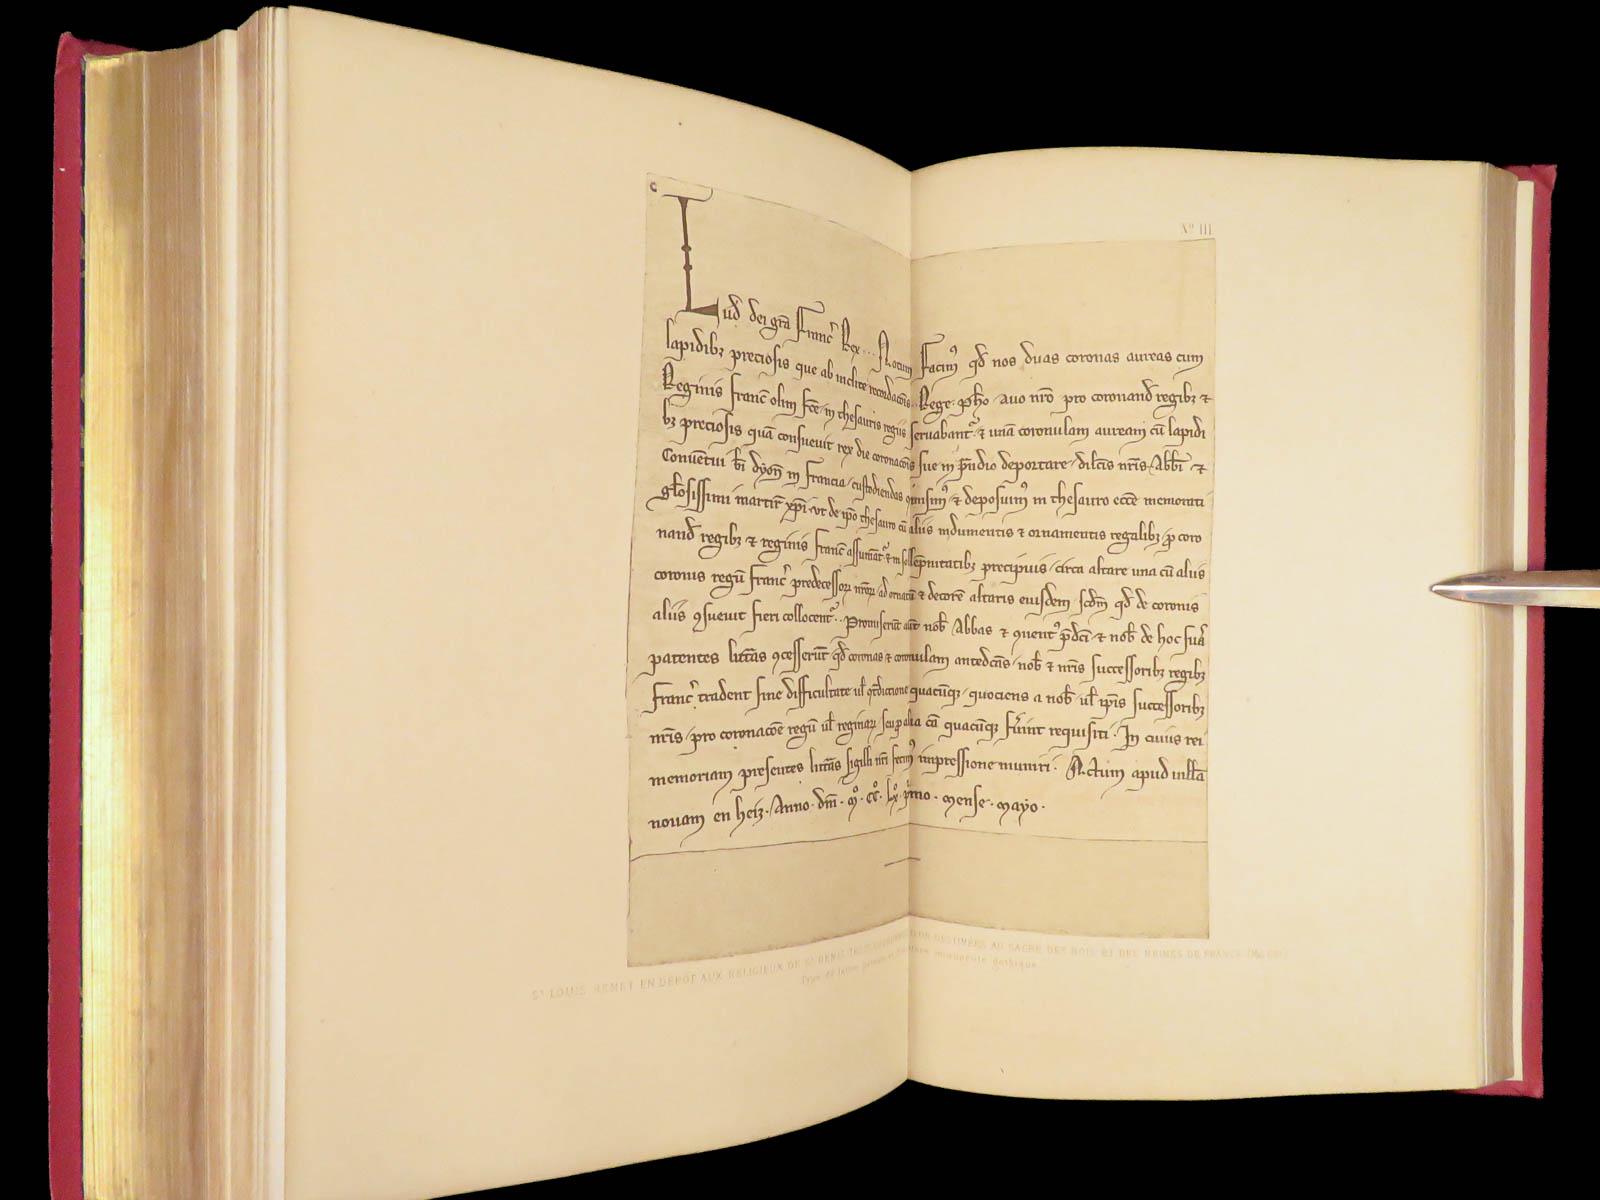 Nº III
Lud̄ dei gr̄a Franc̄ Rex... Notum Facimꝰ qd̄ nos duas coronas aureas cum
lapidibꝫ preciosis que ab inclite recordac̄ois.. Rege. ph̄o. auo nr̄o pro coronand̄ regibꝫ ⁊
Reginis Franc̄ olim fc̄e in thesauris regiis seruabant᷑. ⁊ unā coronulam auream cū lapidi
bꝫ preciosis quā consueuit rex die coronac̄ois sue in p̄ndio deportare. dilc̄is nr̄is. Abb̄i ⁊
Conuētui b̄i dyon̄ in Francia custodiendas misimꝰ. ⁊ deposuimꝰ in thesauro ecc̄e memorati
gl̄osissimi martir̄ xp̄i. vt de ip̄o thesauro cū aliis indumentis ⁊ ornamentis regalibꝫ. ꝓ coro
nand̄ regibꝫ ⁊ reginis Franc̄ assumāt᷑. ⁊ in sollēpnitatibꝫ precipuis. circa altare una cū aliis
coronis regū Franc̄ predecessoꝝ nr̄oꝝ ad ornatū ⁊ decorē altaris eiusdem. scd̄m qd̄ de coronis
aliis ꝯsueuit fieri collocent᷑.. Promiserūt aūt nob̄ Abbas ⁊ ꝯuentꝰ p̄dc̄i ⁊ nob̄ de hoc suas
patentes litt̄as ꝯcesserūt qd̄ coronas ⁊ coronulam antedc̄as. nob̄ ⁊ nr̄is successoribꝫ regibꝫ
Franc̄ tradent sine difficultate ul̄ ꝯt̄dictione quacūqꝫ. quociens a nob̄. ul̄ ip̄is successoribꝫ
nr̄is. pro coronac̄oe regū ul̄ reginaꝝ. seu ꝓ alia cā quacūqꝫ fūint requisiti. In cuius rei
memoriam presentes litt̄as sigilli nr̄i fecimꝰ impressione muniri. Actum apud uillā
nouam en heiz. Anno. dn̄i. mº. ccº. lxº. p̄mo. mense. mayo.
Sᵗ LOUIS REMET EN DÉPÔT AUX RELIGIEUX DE Sᵗ DENIS TROIS COURONNES D'OR DESTINÉES AU SACRE DES ROIS ET DES REINES DE FRANCE (Mai 1261)
Type de lettre patente et d'écriture minuscule gothique